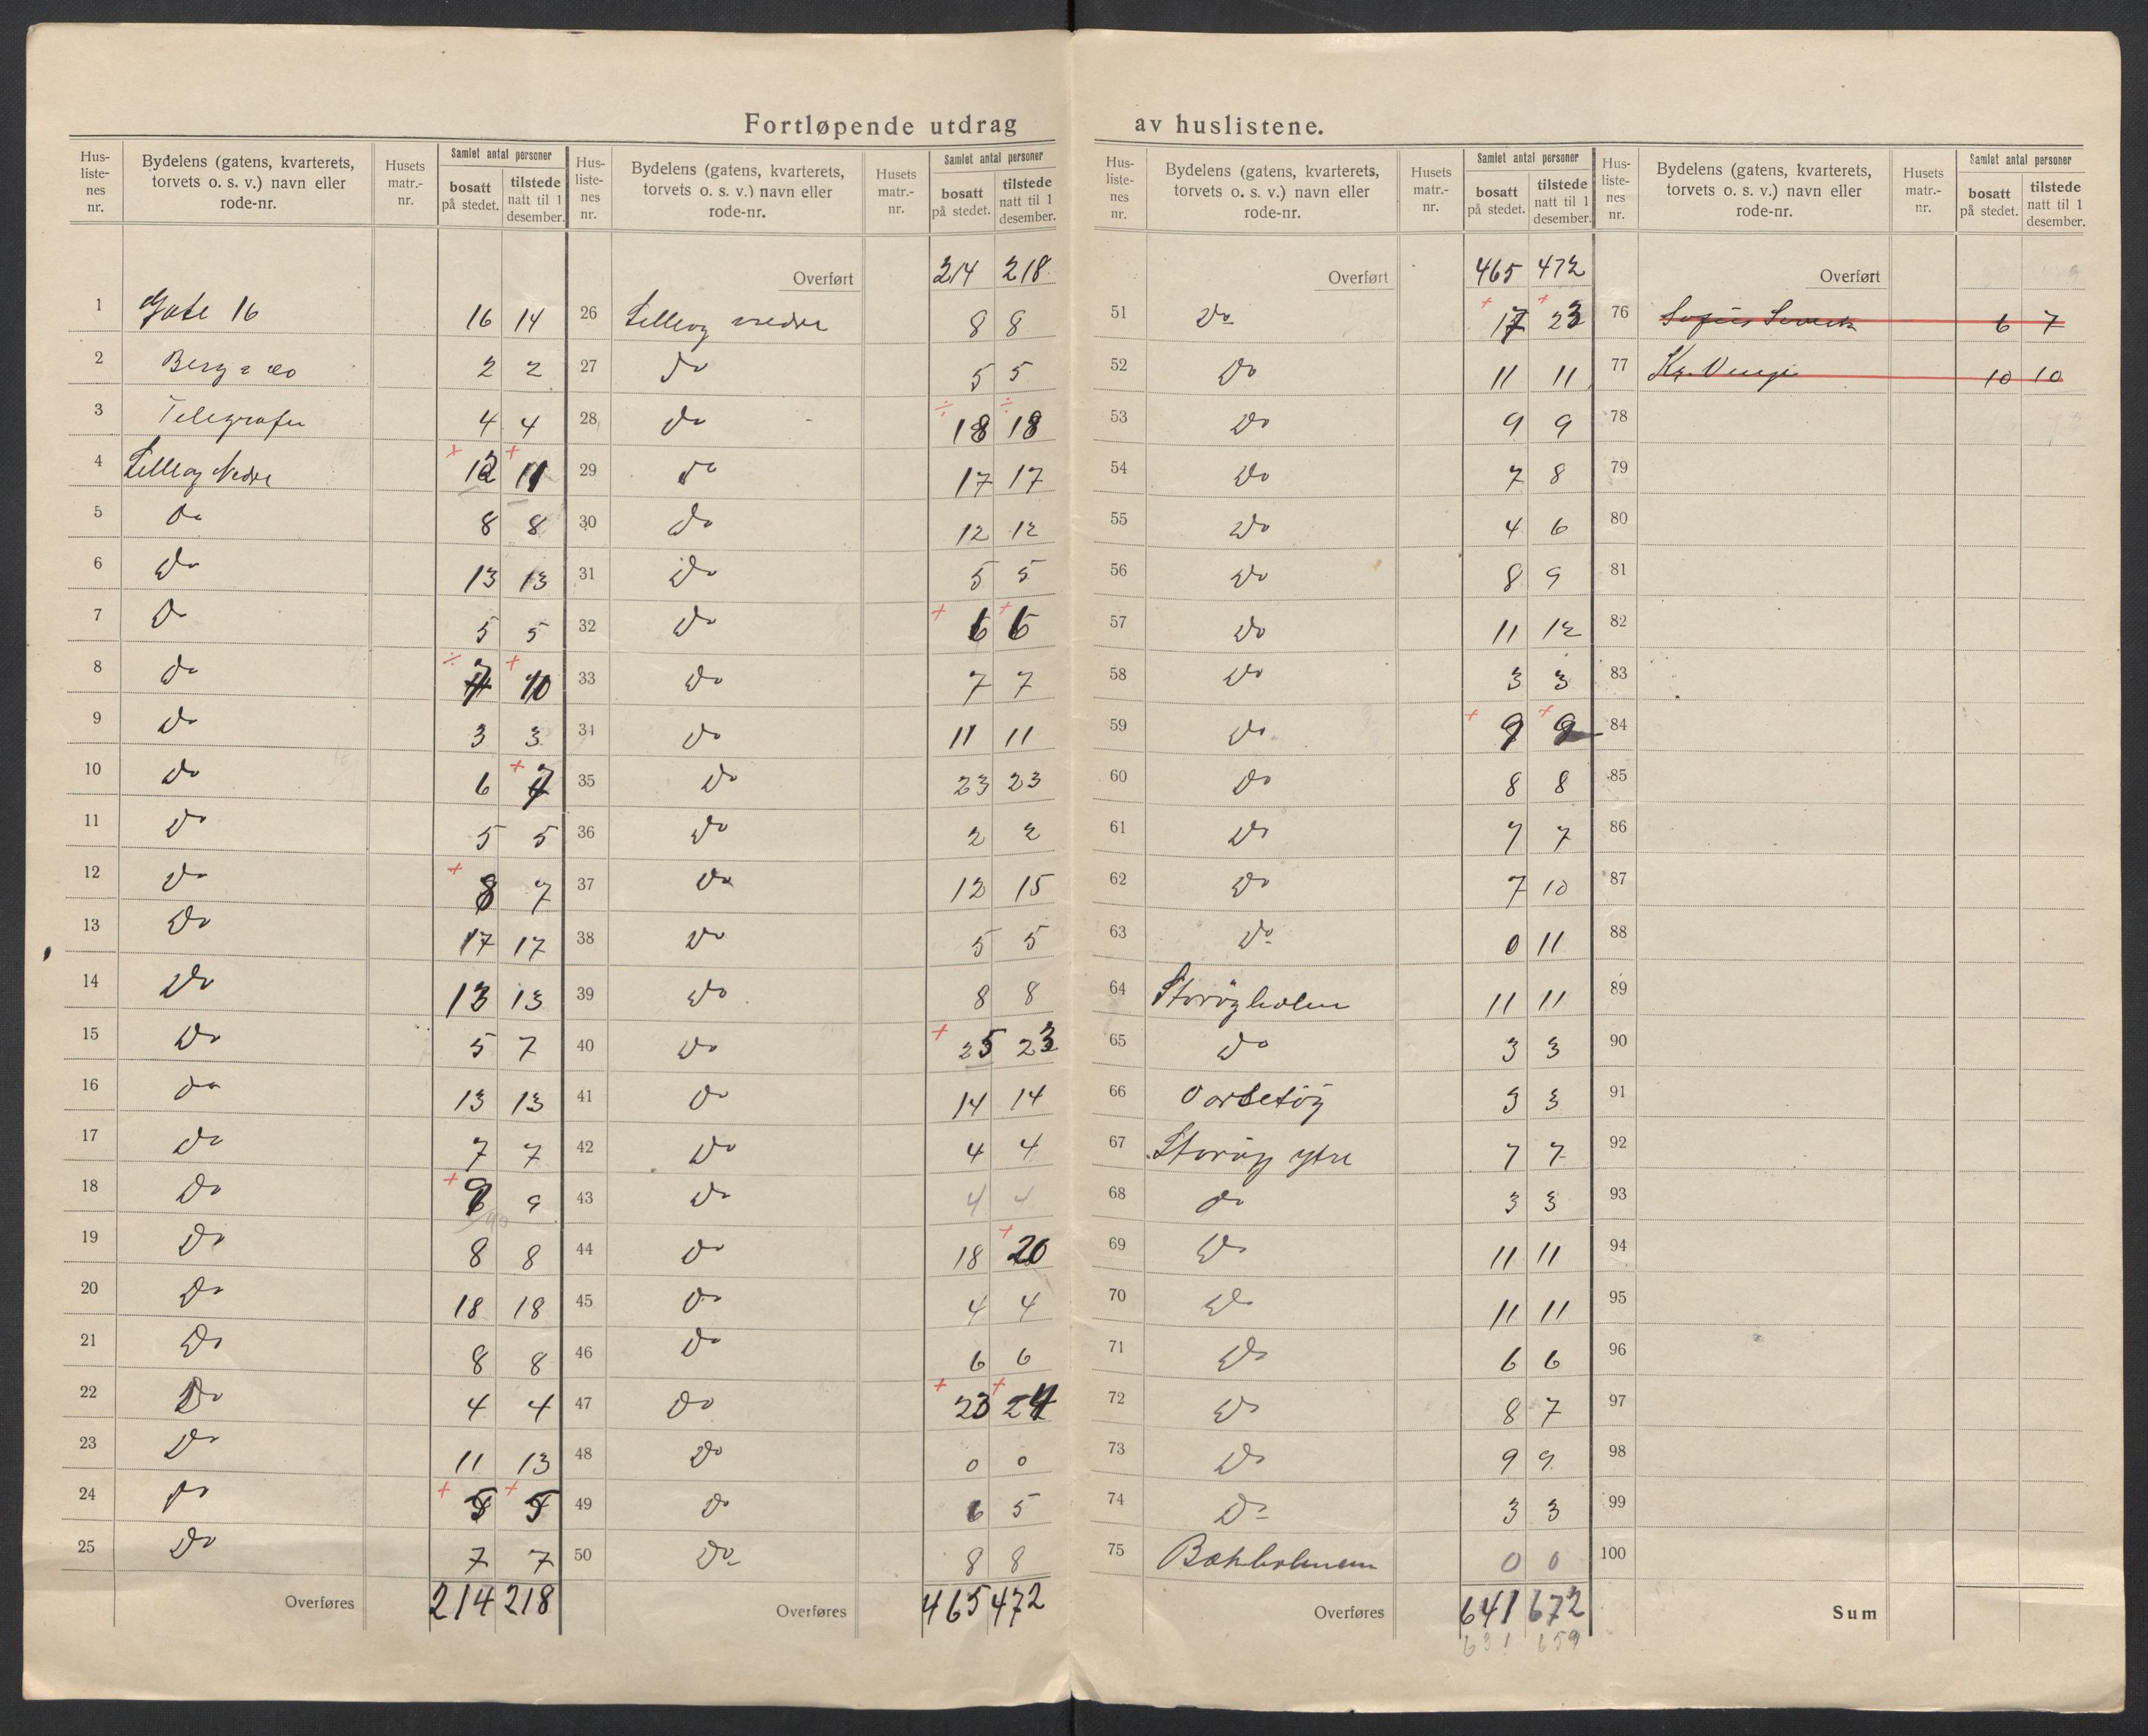 Fortløpende utdrag av huslistene.
Hus-listenes nr. | Bydelens (gatens, kvarterets, torvets o. s. v.) navn eller rode-nr. | Husets matr.-nr. | Samlet antal personer | bosatt på stedet. | tilstede natt til 1 desember.
1 Gate 16 16 14
2 2 2
3 Telegrafen 4 4
4 Lilleøy Nedre 12 11
5 Do 8 8
6 Do 13 13
7 Do 5 5
8 Do 7 10
9 Do 3 3
10 Do 6 7
11 Do 5 5
12 Do 8 7
13 Do 17 17
14 Do 13 13
15 Do 5 7
16 Do 13 13
17 Do 7 7
18 Do 9 9
19 Do 8 8
20 Do 18 18
21 Do 8 8
22 Do 4 4
23 Do 11 13
24 Do 5 5
25 Do 7 7
Overføres 214 218
Hus-listenes nr. | Bydelens (gatens, kvarterets, torvets o. s. v.) navn eller rode-nr. | Husets matr.-nr. | Samlet antal personer | bosatt på stedet. | tilstede natt til 1 desember.
Overført 214 218
26 Lilleøy nedre 8 8
27 Do 5 5
28 Do 18 18
29 Do 17 17
30 Do 12 12
31 Do 5 5
32 Do 6 6
33 Do 7 7
34 Do 11 11
35 Do 23 23
36 Do 2 2
37 Do 12 15
38 Do 5 5
39 Do 8 8
40 Do 25 23
41 Do 14 14
42 Do 4 4
43 Do 4 4
44 Do 18 20
45 Do 4 4
46 Do 6 6
47 Do 23 24
48 Do 0 0
49 Do 6 5
50 Do 8 8
Overføres 465 472
Hus-listenes nr. | Bydelens (gatens, kvarterets, torvets o. s. v.) navn eller rode-nr. | Husets matr.-nr. | Samlet antal personer | bosatt på stedet. | tilstede natt til 1 desember.
Overført 465 472
51 Do 17 23
52 Do 11 11
53 Do 9 9
54 Do 7 8
55 Do 4 6
56 Do 8 9
57 Do 11 12
58 Do 3 3
59 Do 9 9
60 Do 8 8
61 Do 7 7
62 Do 7 10
63 Do 0 11
64 Storøyholm 11 11
65 Do 3 3
66 3 3
67 Storøy ytre 7 7
68 Do 3 3
69 Do 11 11
70 Do 11 11
71 Do 6 6
72 Do 8 7
73 Do 9 9
74 Do 3 3
75 0 0
Overføres 641 672
631 659
Hus-listenes nr. | Bydelens (gatens, kvarterets, torvets o. s. v.) navn eller rode-nr. | Husets matr.-nr. | Samlet antal personer | bosatt på stedet. | tilstede natt til 1 desember.
Overført
76 6 7
77 10 10
78
79
80
81
82
83
84
85
86
87
88
89
90
91
92
93
94
95
96
97
98
99
100
Sum